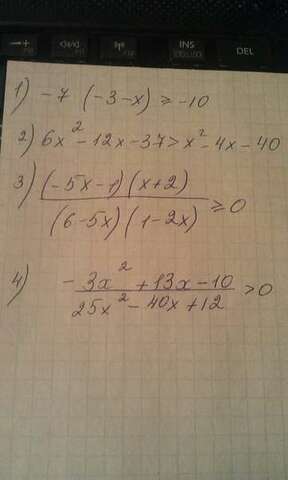 INS
DEL
1) -7 (-3-x) ≥ -10
2) 6x²-12x-37>x²-4x-40
3) (-5x-1)(x+2)/(6-5x)(1-2x) ≥ 0
4) -3x²+13x-10/25x²-40x+12 >0